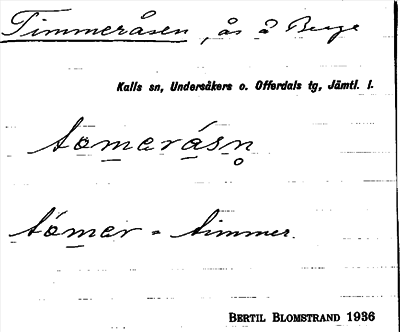 Timmeråsen, ås å Berge
Kalls sn, Undersåkers o. Offerdals tg, Jämtl. l.
tomeråsn̥
tómer = timmer.
BERTIL BLOMSTRAND 1936